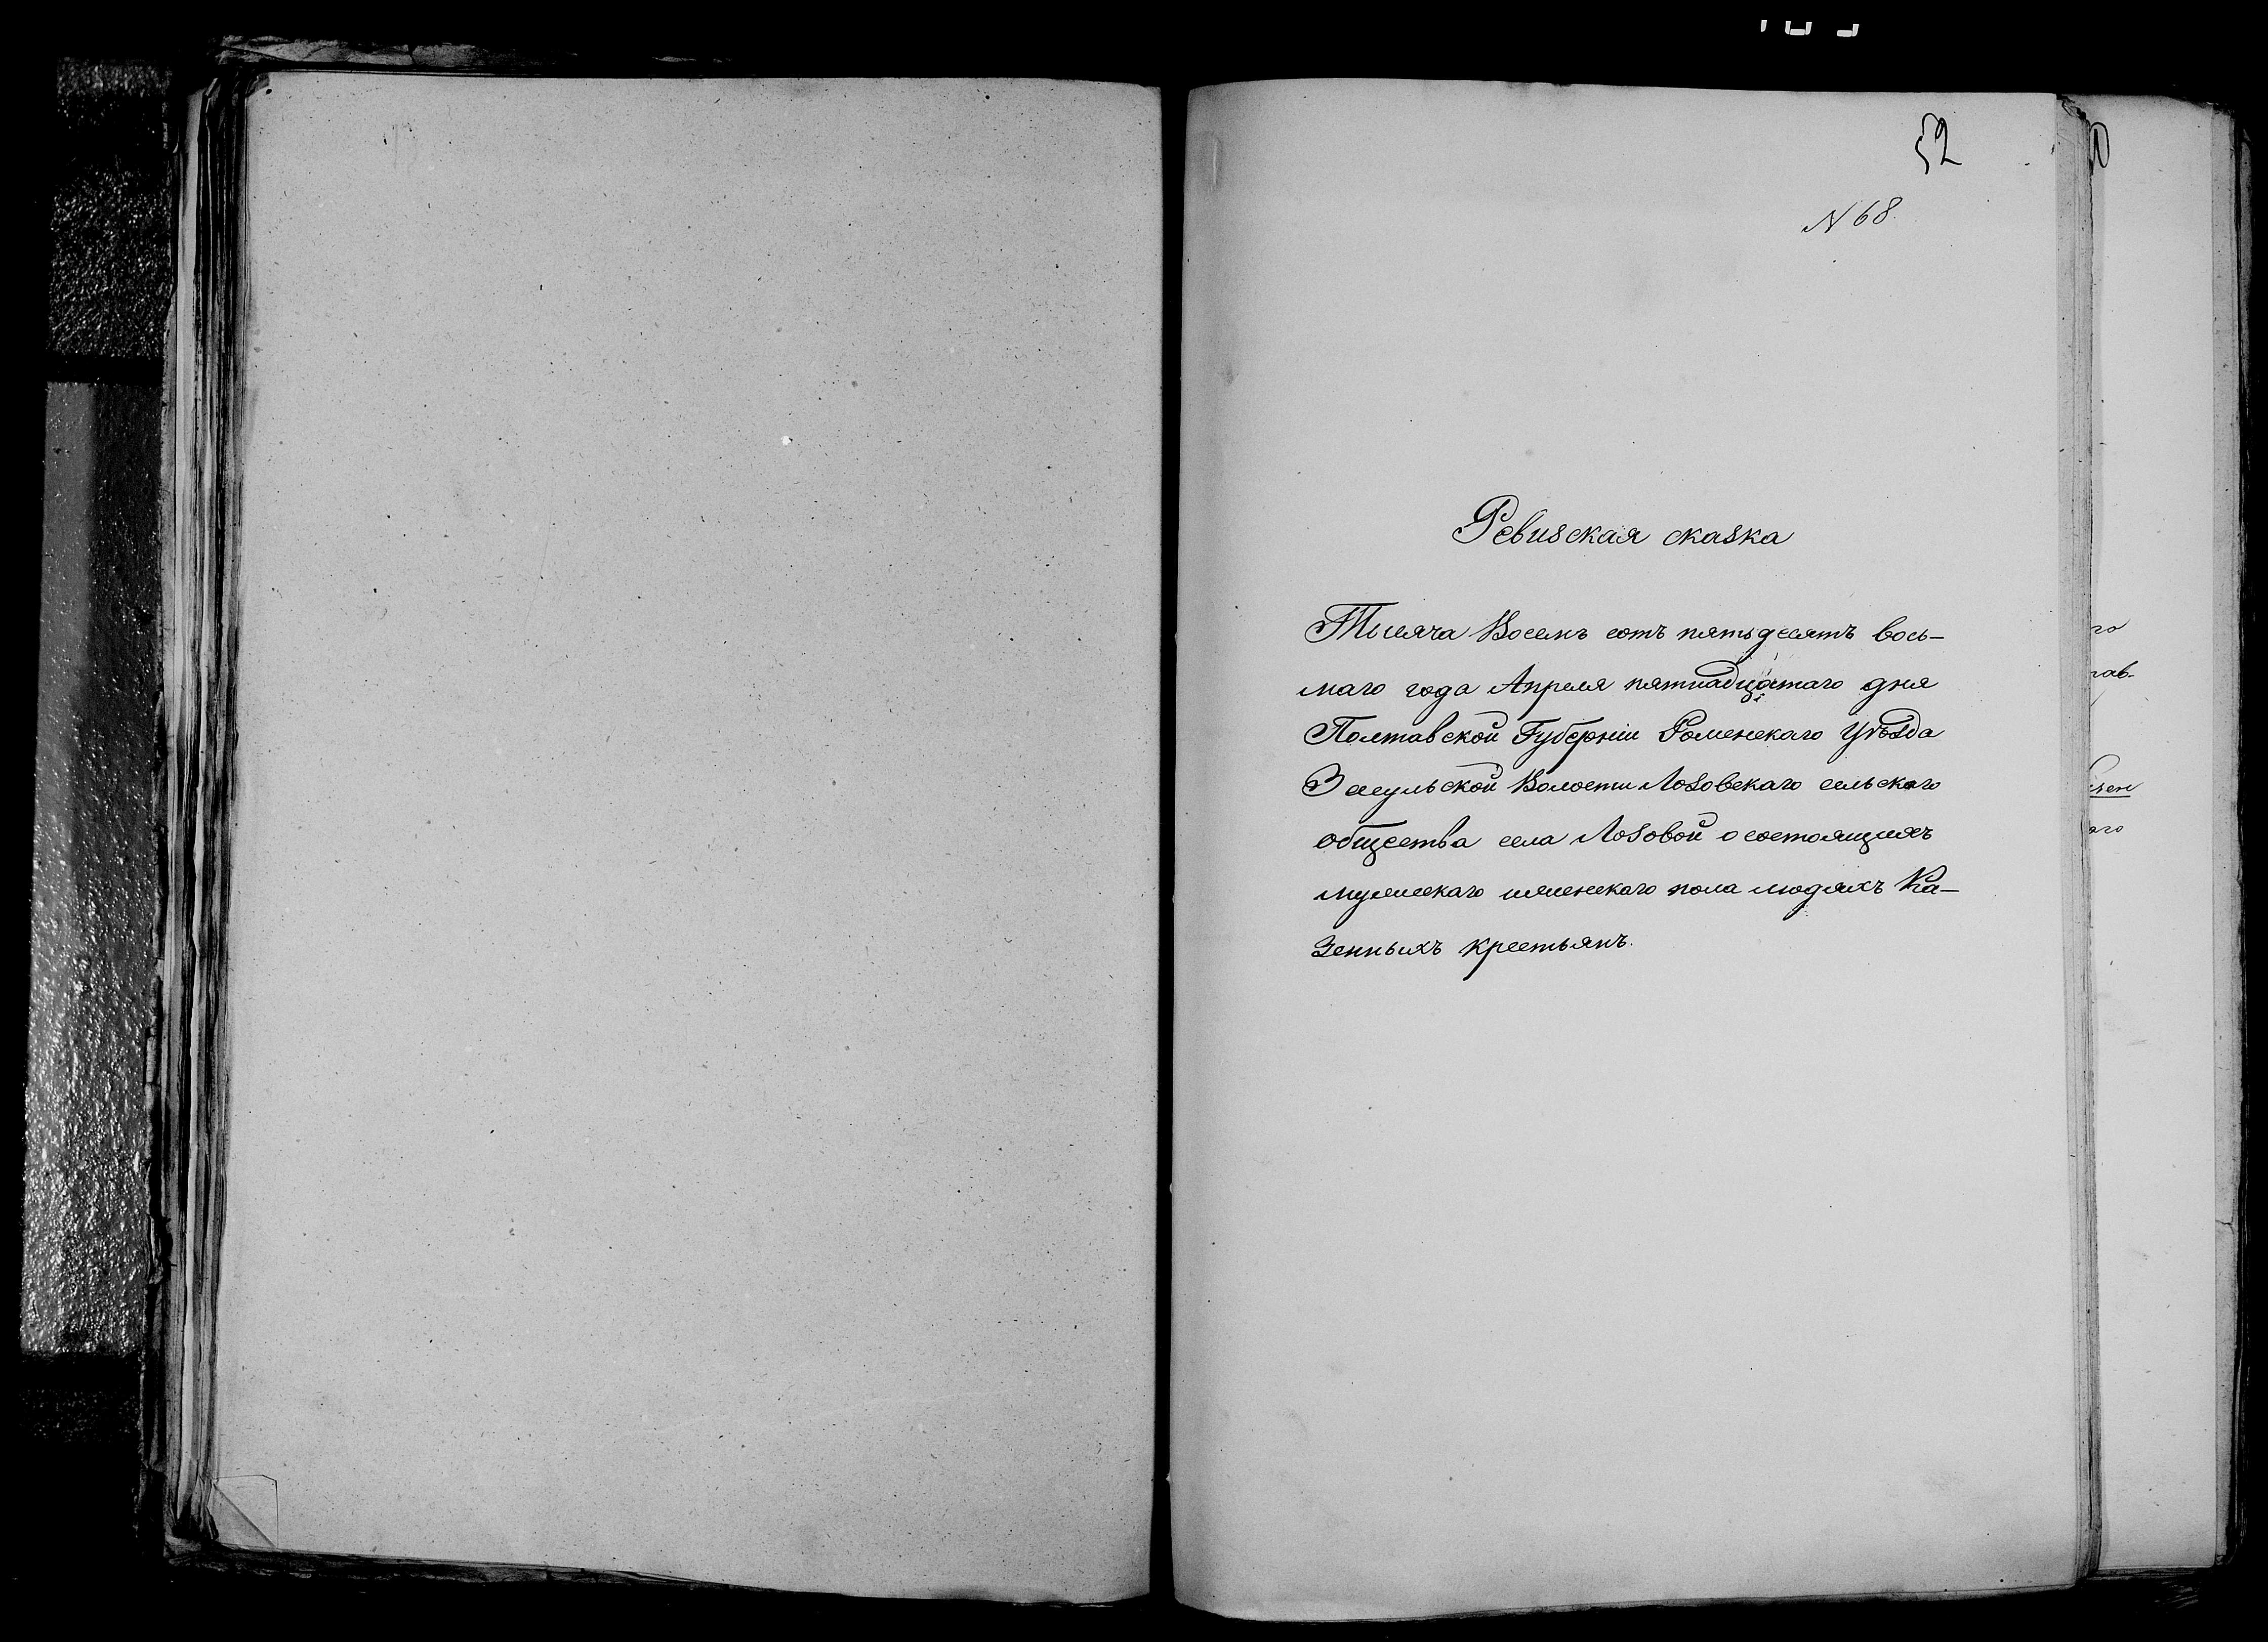 52
N 68.
Ревизская сказка
Тысяча Восемь сотъ пятьдесятъ вось-
маго года Апреля пятнадцатаго дня
Полтавской Губерніи Роменскаго Уѣзда
Засульской Волости Лозовскаго сельскаго
общества села Лозовой о состоящихъ
мужескаго и женскаго пола людяхъ Ка-
зенныхъ крестьянъ.